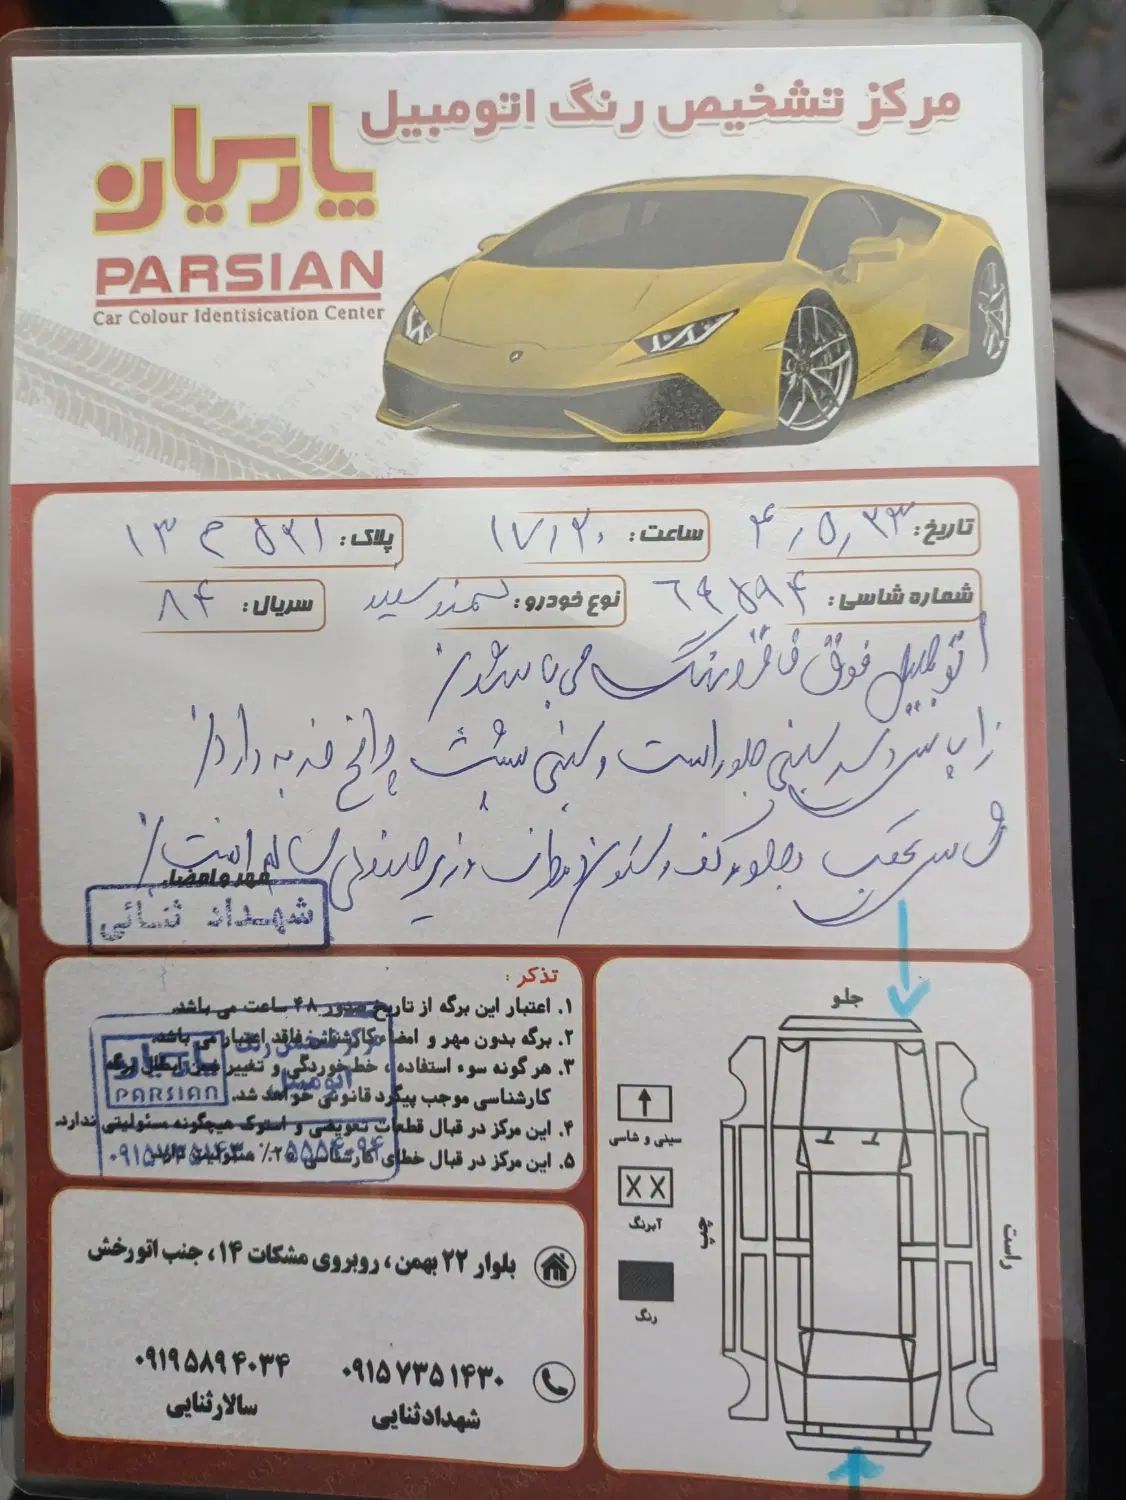 مرکز تشخیص رنگ اتومبیل
پارسیان
PARSIAN
Car Colour Identisication Center
تاریخ: ۴/۵/۲۳
ساعت: ۱۷/۲۰
پلاک: ۱۳ م ۵۲۱
شماره شاسی: ۶۹۵۹۴
نوع خودرو: سمند سفید
سریال: ۸۴
اتومبیل فوق فاقد رنگ می باشد
سینی جلو راست و سینی پشت چراغ ضربه دارد
شاسی عقب و جلو و کف و ستون و زیر صندلی سالم است
مهر و امضا:
شهداد ثنائی
تذکر:
۱. اعتبار این برگه از تاریخ صدور ۴۸ ساعت می باشد.
۲. برگه بدون مهر و امضاء کارشناس فاقد اعتبار می باشد.
۳. هر گونه سوء استفاده، خط خوردگی و تغییر برگه
کارشناسی موجب پیگرد قانونی خواهد شد.
۴. این مرکز در قبال قطعات تعویضی و استوک هیچگونه مسئولیتی ندارد.
۵. این مرکز در قبال خطای کارشناسی ۲۵٪ مسئولیت دارد.
مرکز تشخیص رنگ
اتومبیل
پارسیان
PARSIAN
جلو
سینی و شاسی
X X
آبرنگ
رنگ
چپ
راست
بلوار ۲۲ بهمن، روبروی مشکات ۱۴، جنب اتورخش
۰۹۱۵۷۳۵۱۴۳۰
شهداد ثنایی
۰۹۱۹۵۸۹۴۰۳۴
سالار ثنایی